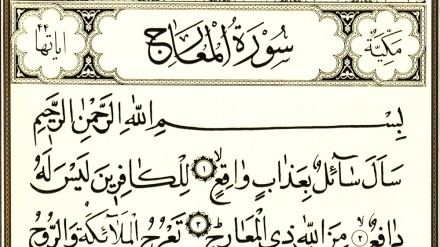 مكية سورة المعارج آياتها ٤٤
بِسْمِ اللَّهِ الرَّحْمَٰنِ الرَّحِيمِ
سَأَلَ سَائِلٌ بِعَذَابٍ وَاقِعٍ ۙ ١ لِلْكَافِرِينَ لَيْسَ لَهُ
دَافِعٌ ۙ ٢ مِنَ اللَّهِ ذِي الْمَعَارِجِ ٣ تَعْرُجُ الْمَلَائِكَةُ وَالرُّوحُ